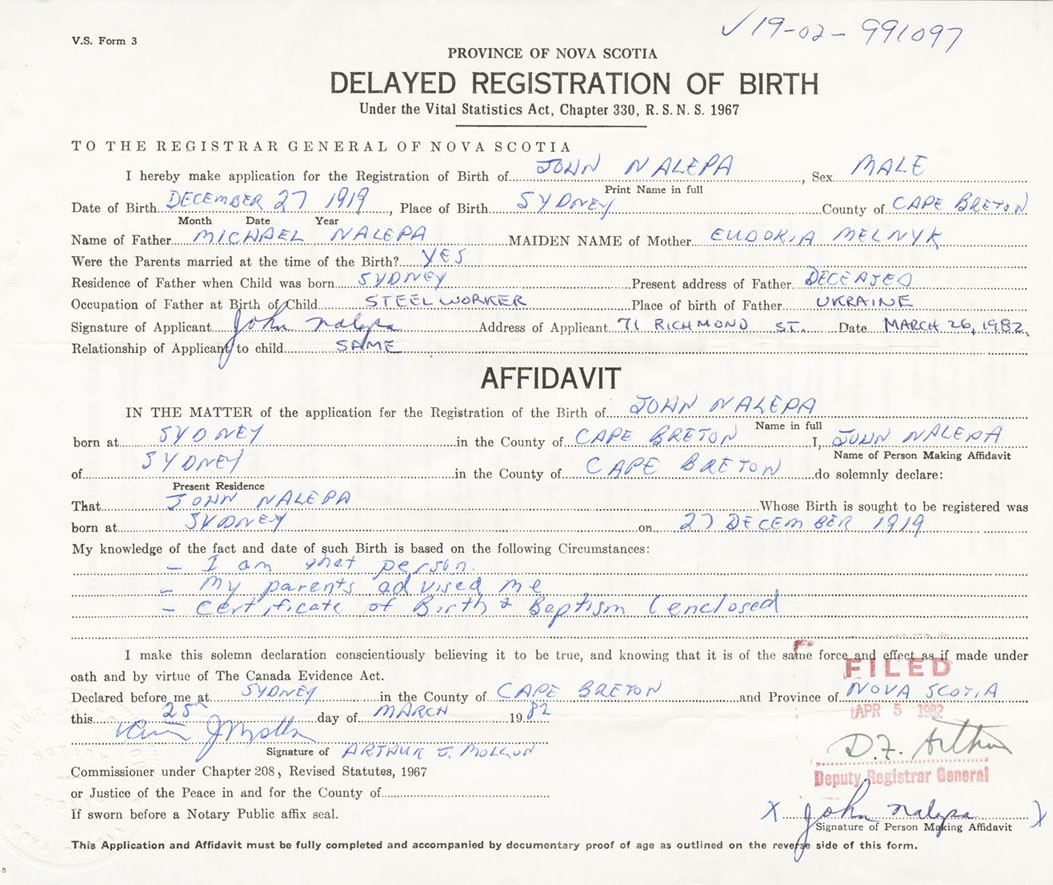 V.S. Form 3
✓19-02-991097
PROVINCE OF NOVA SCOTIA
DELAYED REGISTRATION OF BIRTH
Under the Vital Statistics Act, Chapter 330, R.S.N.S. 1967
TO THE REGISTRAR GENERAL OF NOVA SCOTIA
I hereby make application for the Registration of Birth of JOHN NALEPA, Sex MALE
Print Name in full
Date of Birth DECEMBER 27 1919, Place of Birth SYDNEY County of CAPE BRETON
Month Date Year
Name of Father MICHAEL NALEPA MAIDEN NAME of Mother EUDOKIA MELNYK
Were the Parents married at the time of the Birth? YES
Residence of Father when Child was born SYDNEY Present address of Father DECEASED
Occupation of Father at Birth of Child STEELWORKER Place of birth of Father UKRAINE
Signature of Applicant John Nalepa Address of Applicant 71 RICHMOND ST. Date MARCH 26, 1982
Relationship of Applicant to child SAME
AFFIDAVIT
IN THE MATTER of the application for the Registration of the Birth of JOHN NALEPA
Name in full
born at SYDNEY in the County of CAPE BRETON I, JOHN NALEPA
Name of Person Making Affidavit
of SYDNEY in the County of CAPE BRETON do solemnly declare:
Present Residence
That JOHN NALEPA Whose Birth is sought to be registered was
born at SYDNEY on 27 DECEMBER 1919
My knowledge of the fact and date of such Birth is based on the following Circumstances:
- I am that person.
- My parents advised me
- Certificate of Birth & Baptism (enclosed
I make this solemn declaration conscientiously believing it to be true, and knowing that it is of the same force and effect as if made under
oath and by virtue of The Canada Evidence Act.
FILED
Declared before me at SYDNEY in the County of CAPE BRETON and Province of NOVA SCOTIA
this 25 day of MARCH 1982
APR 5 1982
D.F. Arthur
Signature of ARTHUR J.
Commissioner under Chapter 208, Revised Statutes, 1967
Deputy Registrar General
or Justice of the Peace in and for the County of
If sworn before a Notary Public affix seal.
X John Nalepa X
Signature of Person Making Affidavit
This Application and Affidavit must be fully completed and accompanied by documentary proof of age as outlined on the reverse side of this form.
5